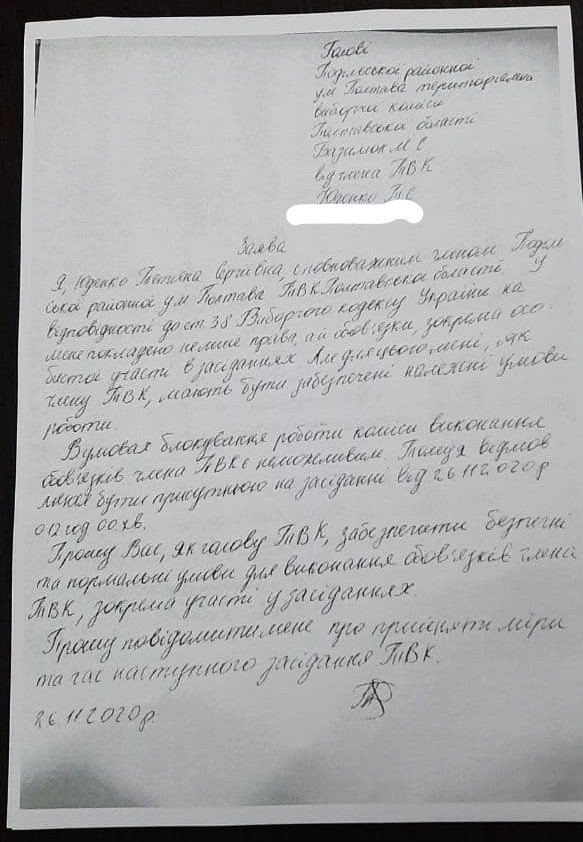 Голові
Подільської районної
у м Полтава територіальній
виборчій комісії
Полтавської області
Базилюк М С
від члена ТВК
Юденко Т С
Заява
Я, Юденко Тетяна Сергіївна, є повноважним членом Поділь
ської районної у м. Полтава ТВК Полтавської області. У
відповідності до ст 38 Виборчого кодексу України на
мене покладено не лише права, а й обов'язки, зокрема осо-
бистої участі в засіданнях Але для цього мені, як
члену ТВК, мають бути забезпечені належні умови
роботи.
В умовах блокування роботи комісії виконання
обов'язків члена ТВК є неможливим. Поліція відмов
бути присутньою на засіданні від 26 11 2020р
о 12 год 00 хв.
Прошу Вас, як голову ТВК, забезпечити безпечні
та нормальні умови для виконання обов'язків члена
ТВК, зокрема участі у засіданнях.
Прошу повідомити мене про прийняті міри
та час наступного засідання ТВК.
26 11 2020р.